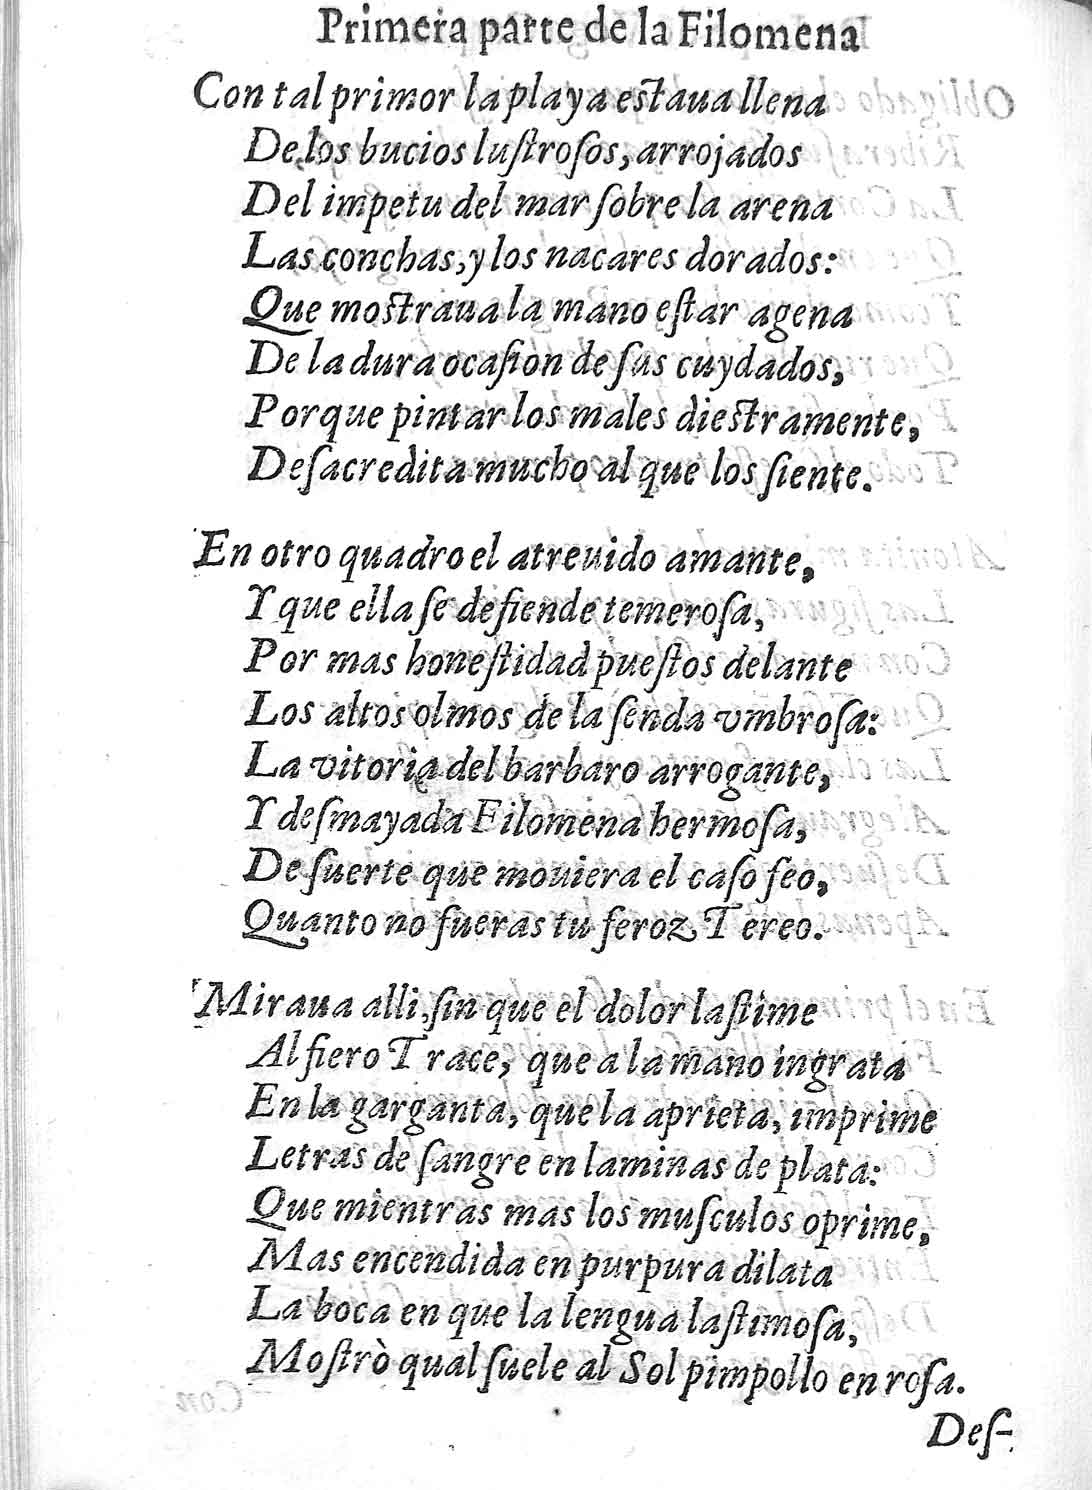 Primera parte de la Filomena
Con tal primor la playa eſtaua llena
De los bucios luſtroſos, arrojados
Del impetu del mar ſobre la arena
Las conchas, y los nacares dorados:
Que moſtraua la mano eſtar agena
De la dura ocaſion de ſus cuydados,
Porque pintar los males dieſtramente,
Deſacredita mucho al que los ſiente.
En otro quadro el atreuido amante,
Y que ella ſe defiende temeroſa,
Por mas honeſtidad pueſtos delante
Los altos olmos de la ſenda vmbroſa:
La vitoria del barbaro arrogante,
Y deſmayada Filomena hermoſa,
De ſuerte que mouiera el caſo feo,
Quanto no fueras tu feroz Tereo.
Miraua alli, ſin que el dolor laſtime
Al fiero Trace, que a la mano ingrata
En la garganta, que la aprieta, imprime
Letras de ſangre en laminas de plata:
Que mientras mas los muſculos oprime,
Mas encendida en purpura dilata
La boca en que la lengua laſtimoſa,
Moſtrò qual ſuele al Sol pimpollo en roſa.
Deſ-